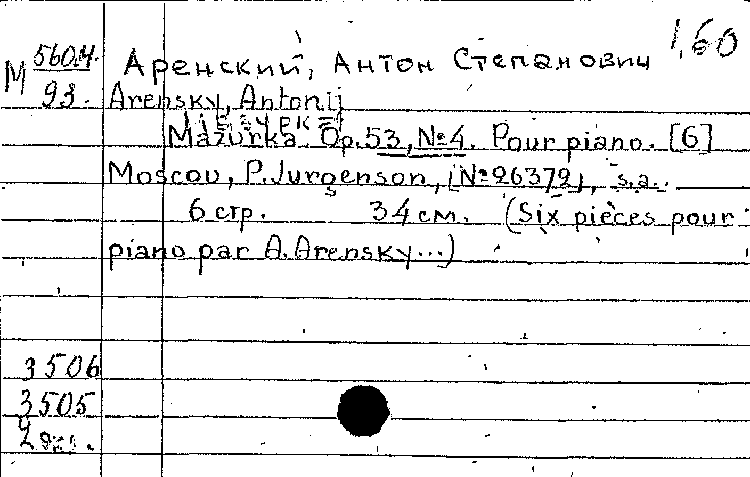 1,60
М 560.4.
93.
Аренский, Антон Степанович
Arensky, Antonij
Mazurka. Op.53, №4. Pour piano. [6]
Moscou, P. Jurgenson, [№26372], s.a.
6 стр. 34 см. (Six pièces pour
piano par A. Arensky...)
3506
3505